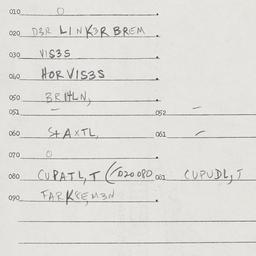 010 O
020 D3R LINK3R BREM
030 VIS3S
040 HORVIS3S
050 BRHLN,
051 – 052 –
060 StAXTL, 061 –
070 O
080 CUPATL,T (020080 081 CUPUDL,T
090